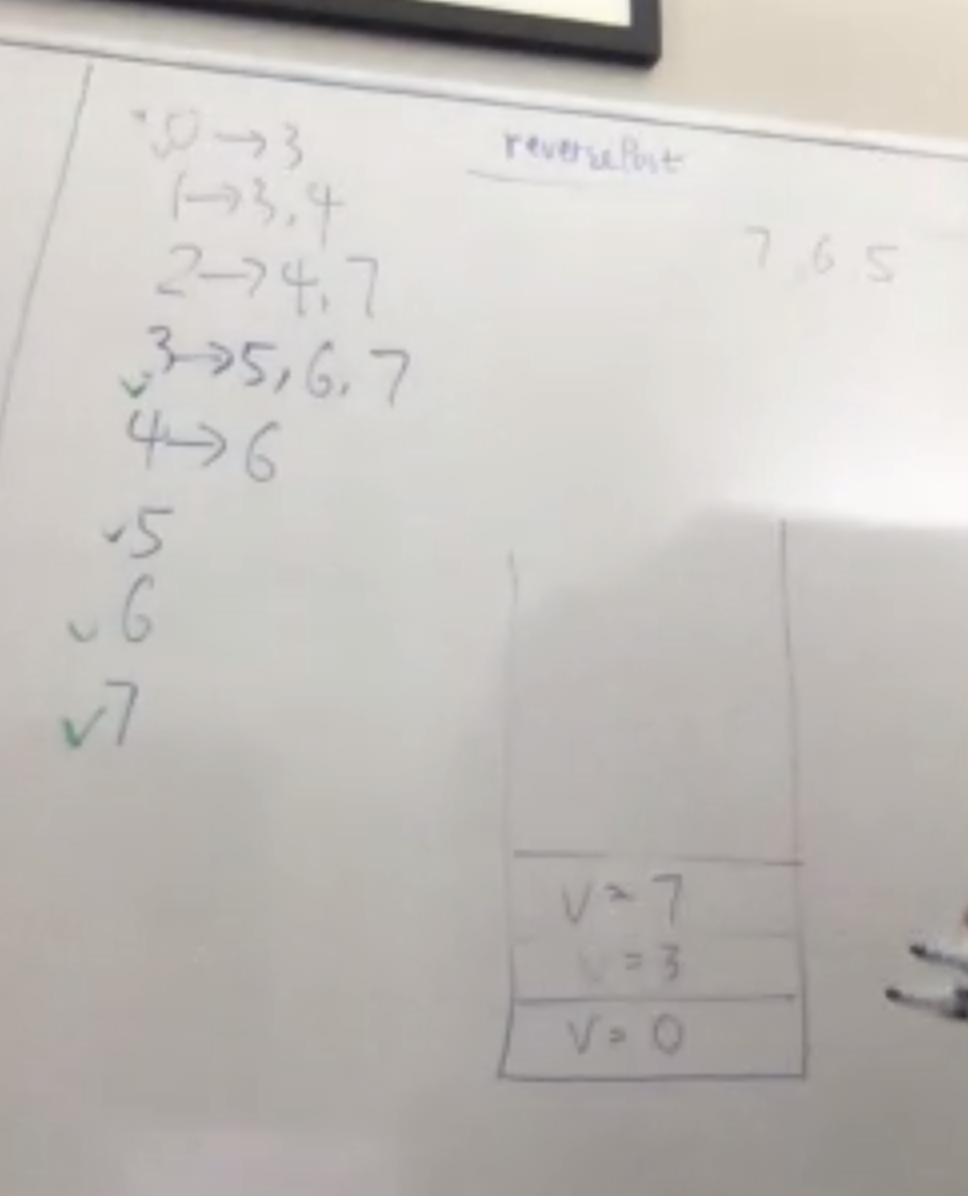 0→3
1→3,4
2→4,7
3→5,6,7
4→6
✓5
✓6
✓7
reversePost
7,6 5
V=7
V=3
V=0